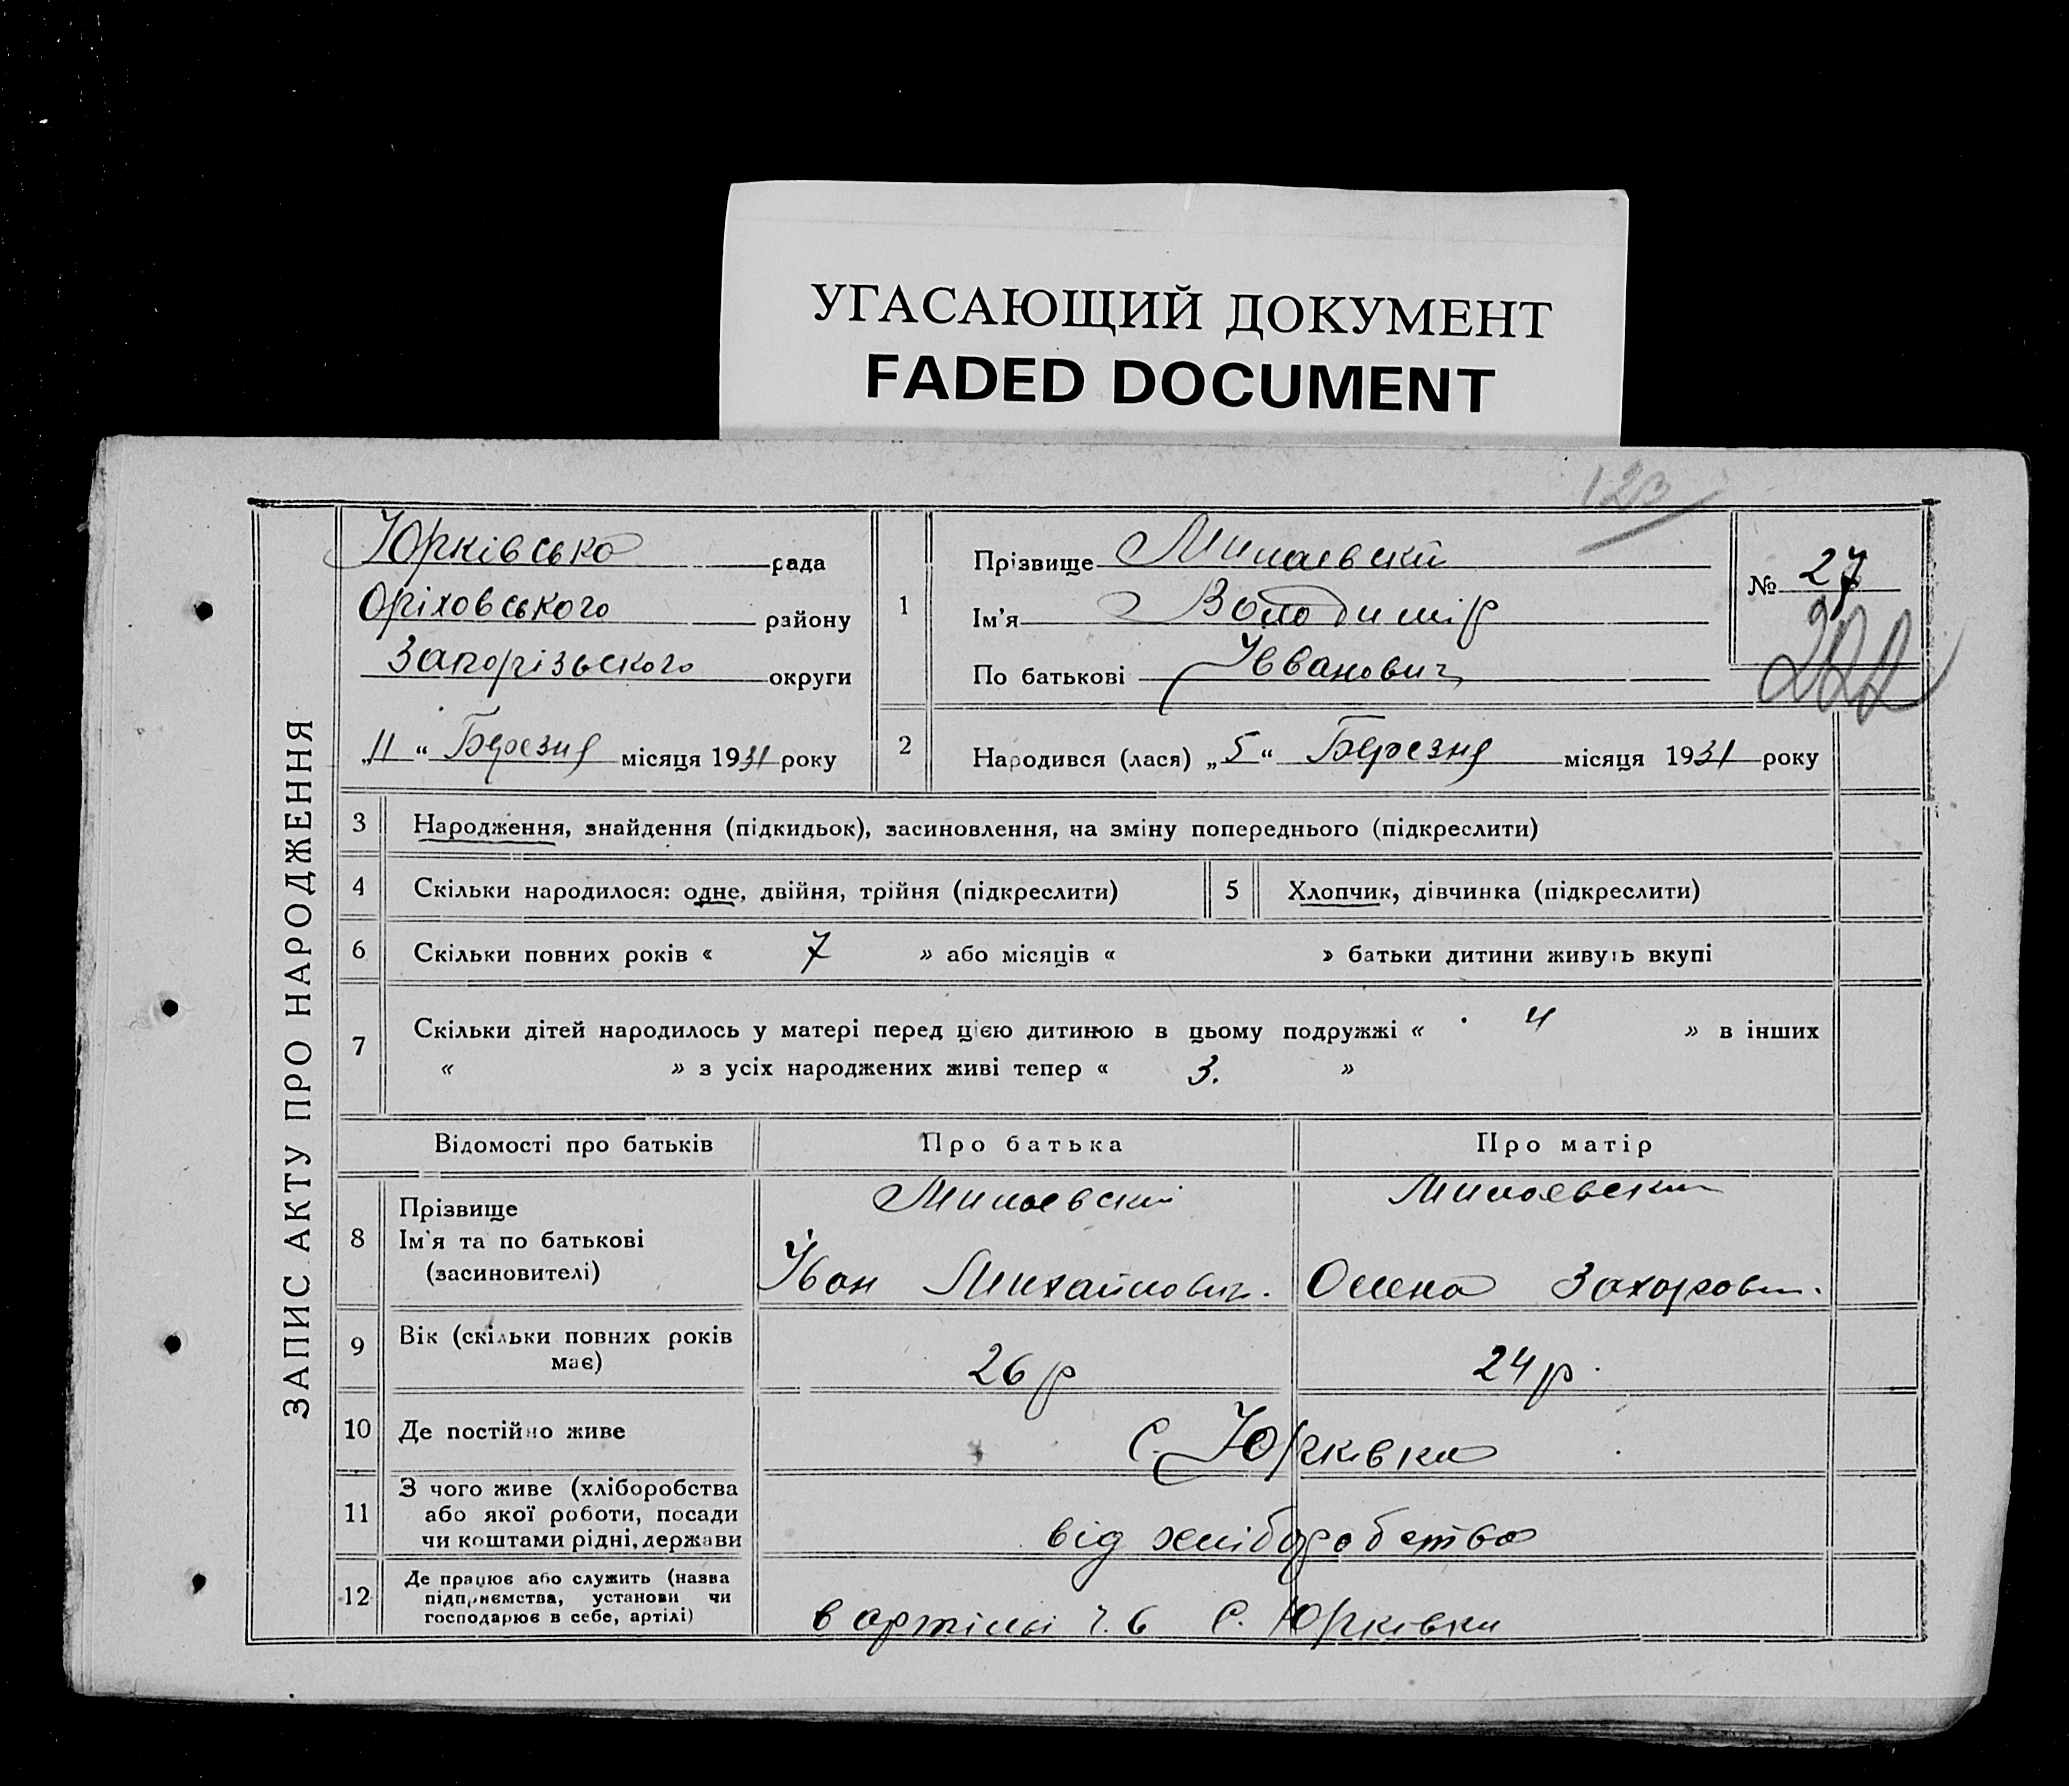 УГАСАЮЩИЙ ДОКУМЕНТ
FADED DOCUMENT
123
ЗАПИС АКТУ ПРО НАРОДЖЕННЯ
Юрківська рада
Оріховського району
Запорізьського округи
„11“ Березня місяця 1931 року
1 Прізвище
Ім'я Володимір
По батькові Іванович
№ 27
222
2 Народився (лася) „5“ Березня місяця 1931 року
3 Народження, знайдення (підкидьок), засиновлення, на зміну попереднього (підкреслити)
4 Скільки народилося: одне, двійня, трійня (підкреслити) 5 Хлопчик, дівчинка (підкреслити)
6 Скільки повних років « 7 » або місяців « » батьки дитини живуть вкупі
7 Скільки дітей народилось у матері перед цією дитиною в цьому подружжі « 4 » в інших
« » з усіх народжених живі тепер « 3. »
Відомості про батьків Про батька Про матір
8 Прізвище
Ім'я та по батькові
(засиновителі)
Іван Михайлович. Олена Захоров.
9 Вік (скільки повних років
має)
26 р 24 р.
10 Де постійно живе с. Юрківка
11 З чого живе (хліборобства
або якої роботи, посади
чи коштами рідні, держави
від хліборобства
12 Де працює або служить (назва
підприємства, установи чи
господарює в себе, артілі)
в артілі ч. 6 с. Юрківки